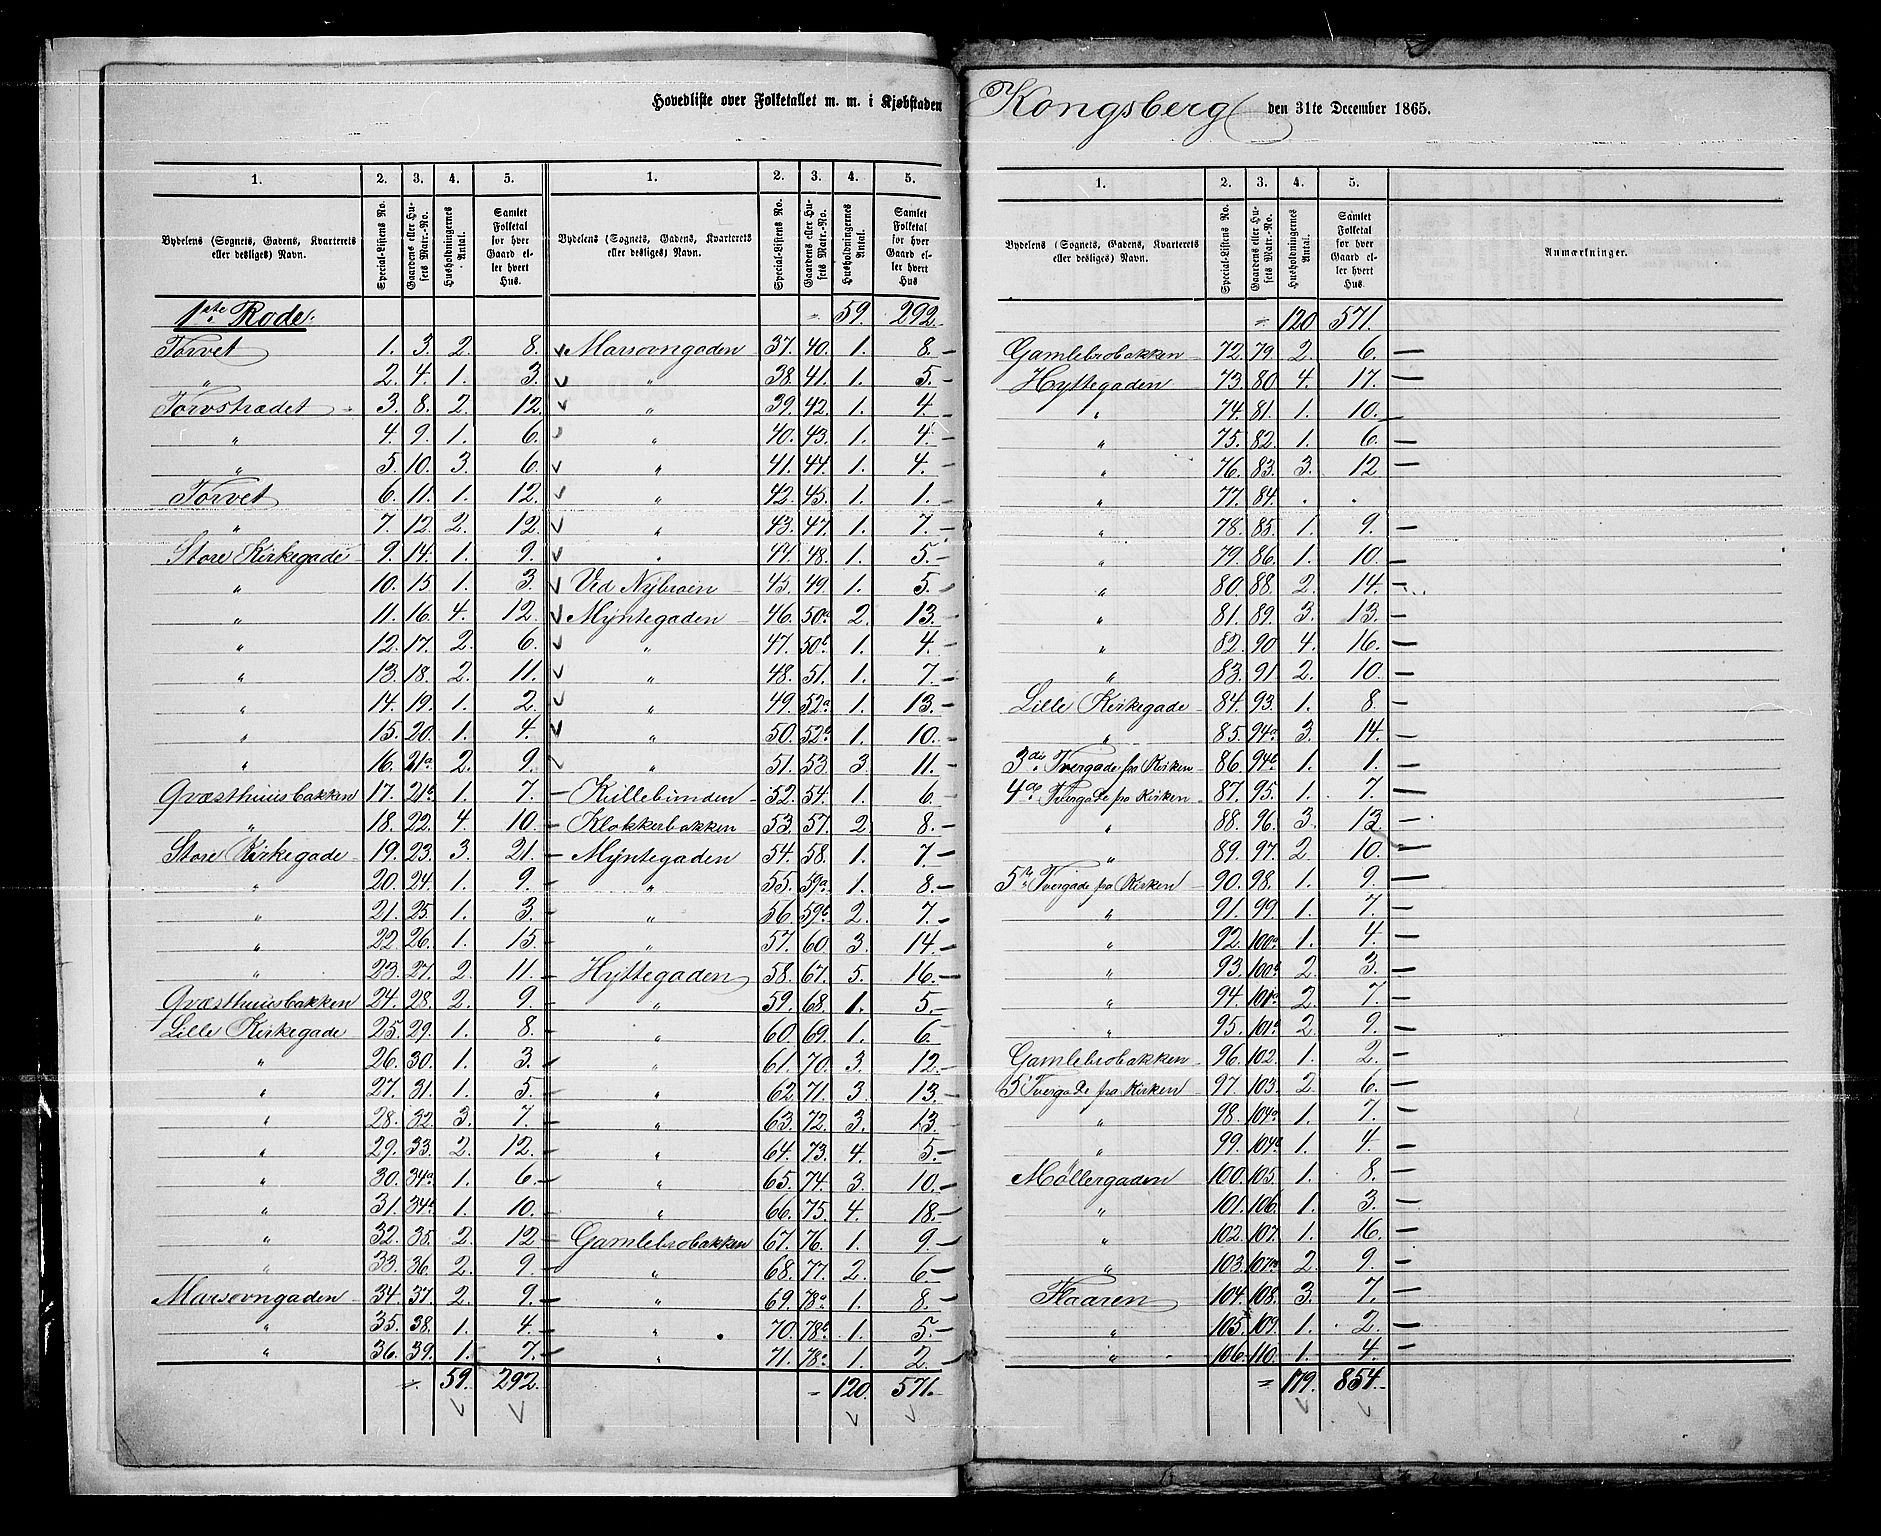 Hovedliste over Folketallet m. m. i Kjøbstaden Kongsberg den 31te December 1865.
1. 2. 3. 4. 5. 1. 2. 3. 4. 5.
Bydelens (Sognets, Gadens, Kvarterets eller desliges) Navn. Special-Listens No. Gaardens eller Husets Matr.-No. Husholdningernes Antal. Samlet Folketal for hver Gaard eller hvert Hus. Bydelens (Sognets, Gadens, Kvarterets eller desliges) Navn. Special-Listens No. Gaardens eller Husets Matr.-No. Husholdningernes Antal. Samlet Folketal for hver Gaard eller hvert Hus
1ste Rode. = 59. 292.
Torvet 1. 3. 2. 8. Marsovngaden 37. 40. 1. 8.
" 2. 4. 1. 3. " 38. 41. 1. 5.
Torvstrædet 3. 8. 2. 12. " 39. 42. 1. 4.
" 4. 9. 1. 6. " 40. 43. 1. 4.
" 5. 10. 3. 6. " 41. 44. 1. 4.
Torvet 6. 11. 1. 12. " 42. 45. 1. 1.
" 7. 12. 2. 12. " 43. 47. 1. 7.
Store Kirkegade 9. 14. 1. 9. " 44. 48. 1. 5.
" 10. 15. 1. 3. Ved Nybroen 45. 49. 1. 5.
" 11. 16. 4. 12. Myntegaden 46. 50a 2. 13.
" 12. 17. 2. 6. " 47. 50b 1. 4.
" 13. 18. 2. 11. " 48. 51. 1. 7.
" 14. 19. 1. 2. " 49. 52a 1. 13.
" 15. 20. 1. 4. " 50. 52b 1. 10.
" 16. 21a 2. 9. " 51. 53. 3. 11.
Qvæsthuusbakken 17. 21b 1. 7. Killebunden 52. 54. 1. 6.
" 18. 22. 4. 10. Klokkerbakken 53. 57. 2. 8.
Store Kirkegade 19. 23. 3. 21. Myntegaden 54. 58. 1. 7.
" 20. 24. 1. 9. " 55. 59a 1. 8.
" 21. 25. 1. 3. " 56. 59b 2. 7.
" 22. 26. 1. 15. " 57. 60. 3. 14.
" 23. 27. 2. 11. Hyttegaden 58. 67. 5. 16.
Qvæsthuusbakken 24. 28. 2. 9. " 59. 68. 1. 5.
Lille Kirkegade 25. 29. 1. 8. " 60. 69. 1. 6.
" 26. 30. 1. 3. " 61. 70. 3. 12.
" 27. 31. 1. 5. " 62. 71. 3. 13.
" 28. 32. 3. 7. " 63. 72. 3. 13.
" 29. 33. 2. 12. " 64. 73. 4. 5.
" 30. 34a 1. 6. " 65. 74. 3. 10.
" 31. 34b 1. 10. " 66. 75. 4. 18.
" 32. 35. 2. 12. Gamlebrobakken 67. 76. 1. 9.
" 33. 36. 2. 9. " 68. 77. 2. 6.
Marsovngaden 34. 37. 2. 9. " 69. 78a 1. 8.
" 35. 38. 1. 4. " 70. 78b 1. 5.
" 36. 39. 1. 7. " 71. 78c 1. 2.
= 59. 292. = 120. 571.
1. 2. 3. 4. 5.
Bydelens (Sognets, Gadens, Kvarterets eller desliges) Navn. Special-Listens No. Gaardens eller Husets Matr.-No. Husholdningernes Antal. Samlet Folketal for hver Gaard eller hvert Hus Anmærkninger.
= 120 571.
Gamlebrobakken 72. 79. 2. 6.
Hyttegaden 73. 80. 4. 17.
" 74. 81. 1. 10.
" 75. 82. 1. 6.
" 76. 83. 3. 12
" 77. 84. . .
" 78. 85. 1. 9.
" 79. 86. 1. 10.
" 80. 88. 2. 14.
" 81. 89. 3. 13.
" 82. 90. 4. 16.
" 83. 91. 2. 10.
Lille Kirkegade 84. 93. 1. 8.
" 85. 94a 3. 14.
3die Tvergade fra Kirken 86. 94b 1. 1.
4de Tvergade fra Kirken 87. 95. 1. 7.
" 88. 96. 3. 13
" 89. 97. 2 10.
5te Tvergade fra Kirken 90. 98. 1. 9.
" 91. 99. 1. 7.
" 92. 100a 1. 4.
" 93. 100b 2. 3.
" 94. 101a 2. 7.
" 95. 101b 2 9.
Gamlebrobakken 96. 102. 1. 2.
5te Tvergade fra Kirken 97. 103. 2. 6.
" 98. 104a 1. 7.
" 99. 104b 1. 4.
Møllergaden 100. 105. 1. 8.
" 101. 106. 1. 3.
" 102. 107. 1. 16.
" 103. 2. 9.
Flaaren 104. 108. 3. 7.
" 105. 109. 1. 2.
" 106. 110. 1. 4.
= 179. 854.